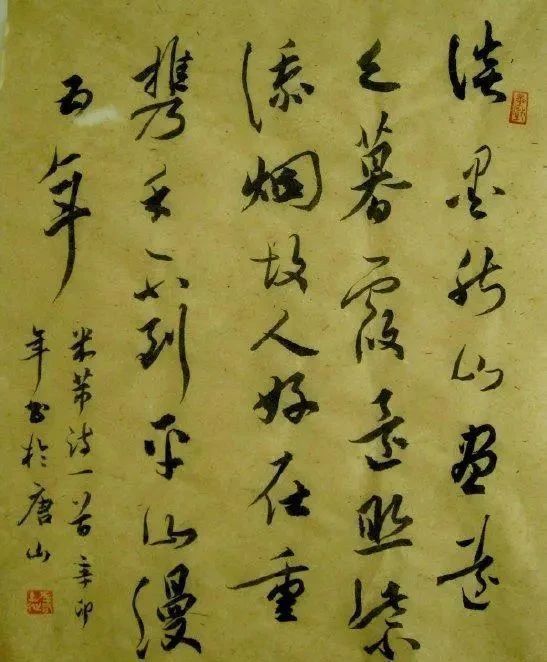 淡墨秋山畫遠
天暮霞還照紫
添烟故人好在重
携手不到平山漫
五年
米芾詩一首辛卯
年书於唐山